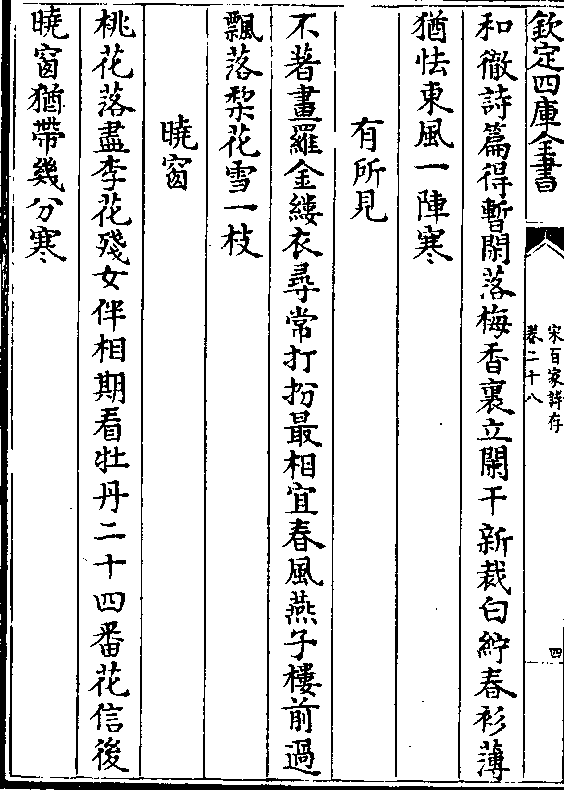 欽定四庫全書
宋百家詩存
卷二十八
四
和徹詩篇得暫閑落梅香裏立闌干新裁白紵春衫薄
猶怯東風一陣寒
有所見
不著畫羅金縷衣尋常打扮最相宜春風燕子樓前過
飄落梨花雪一枝
曉窗
桃花落盡李花殘女伴相期看牡丹二十四番花信後
曉窗猶帶幾分寒